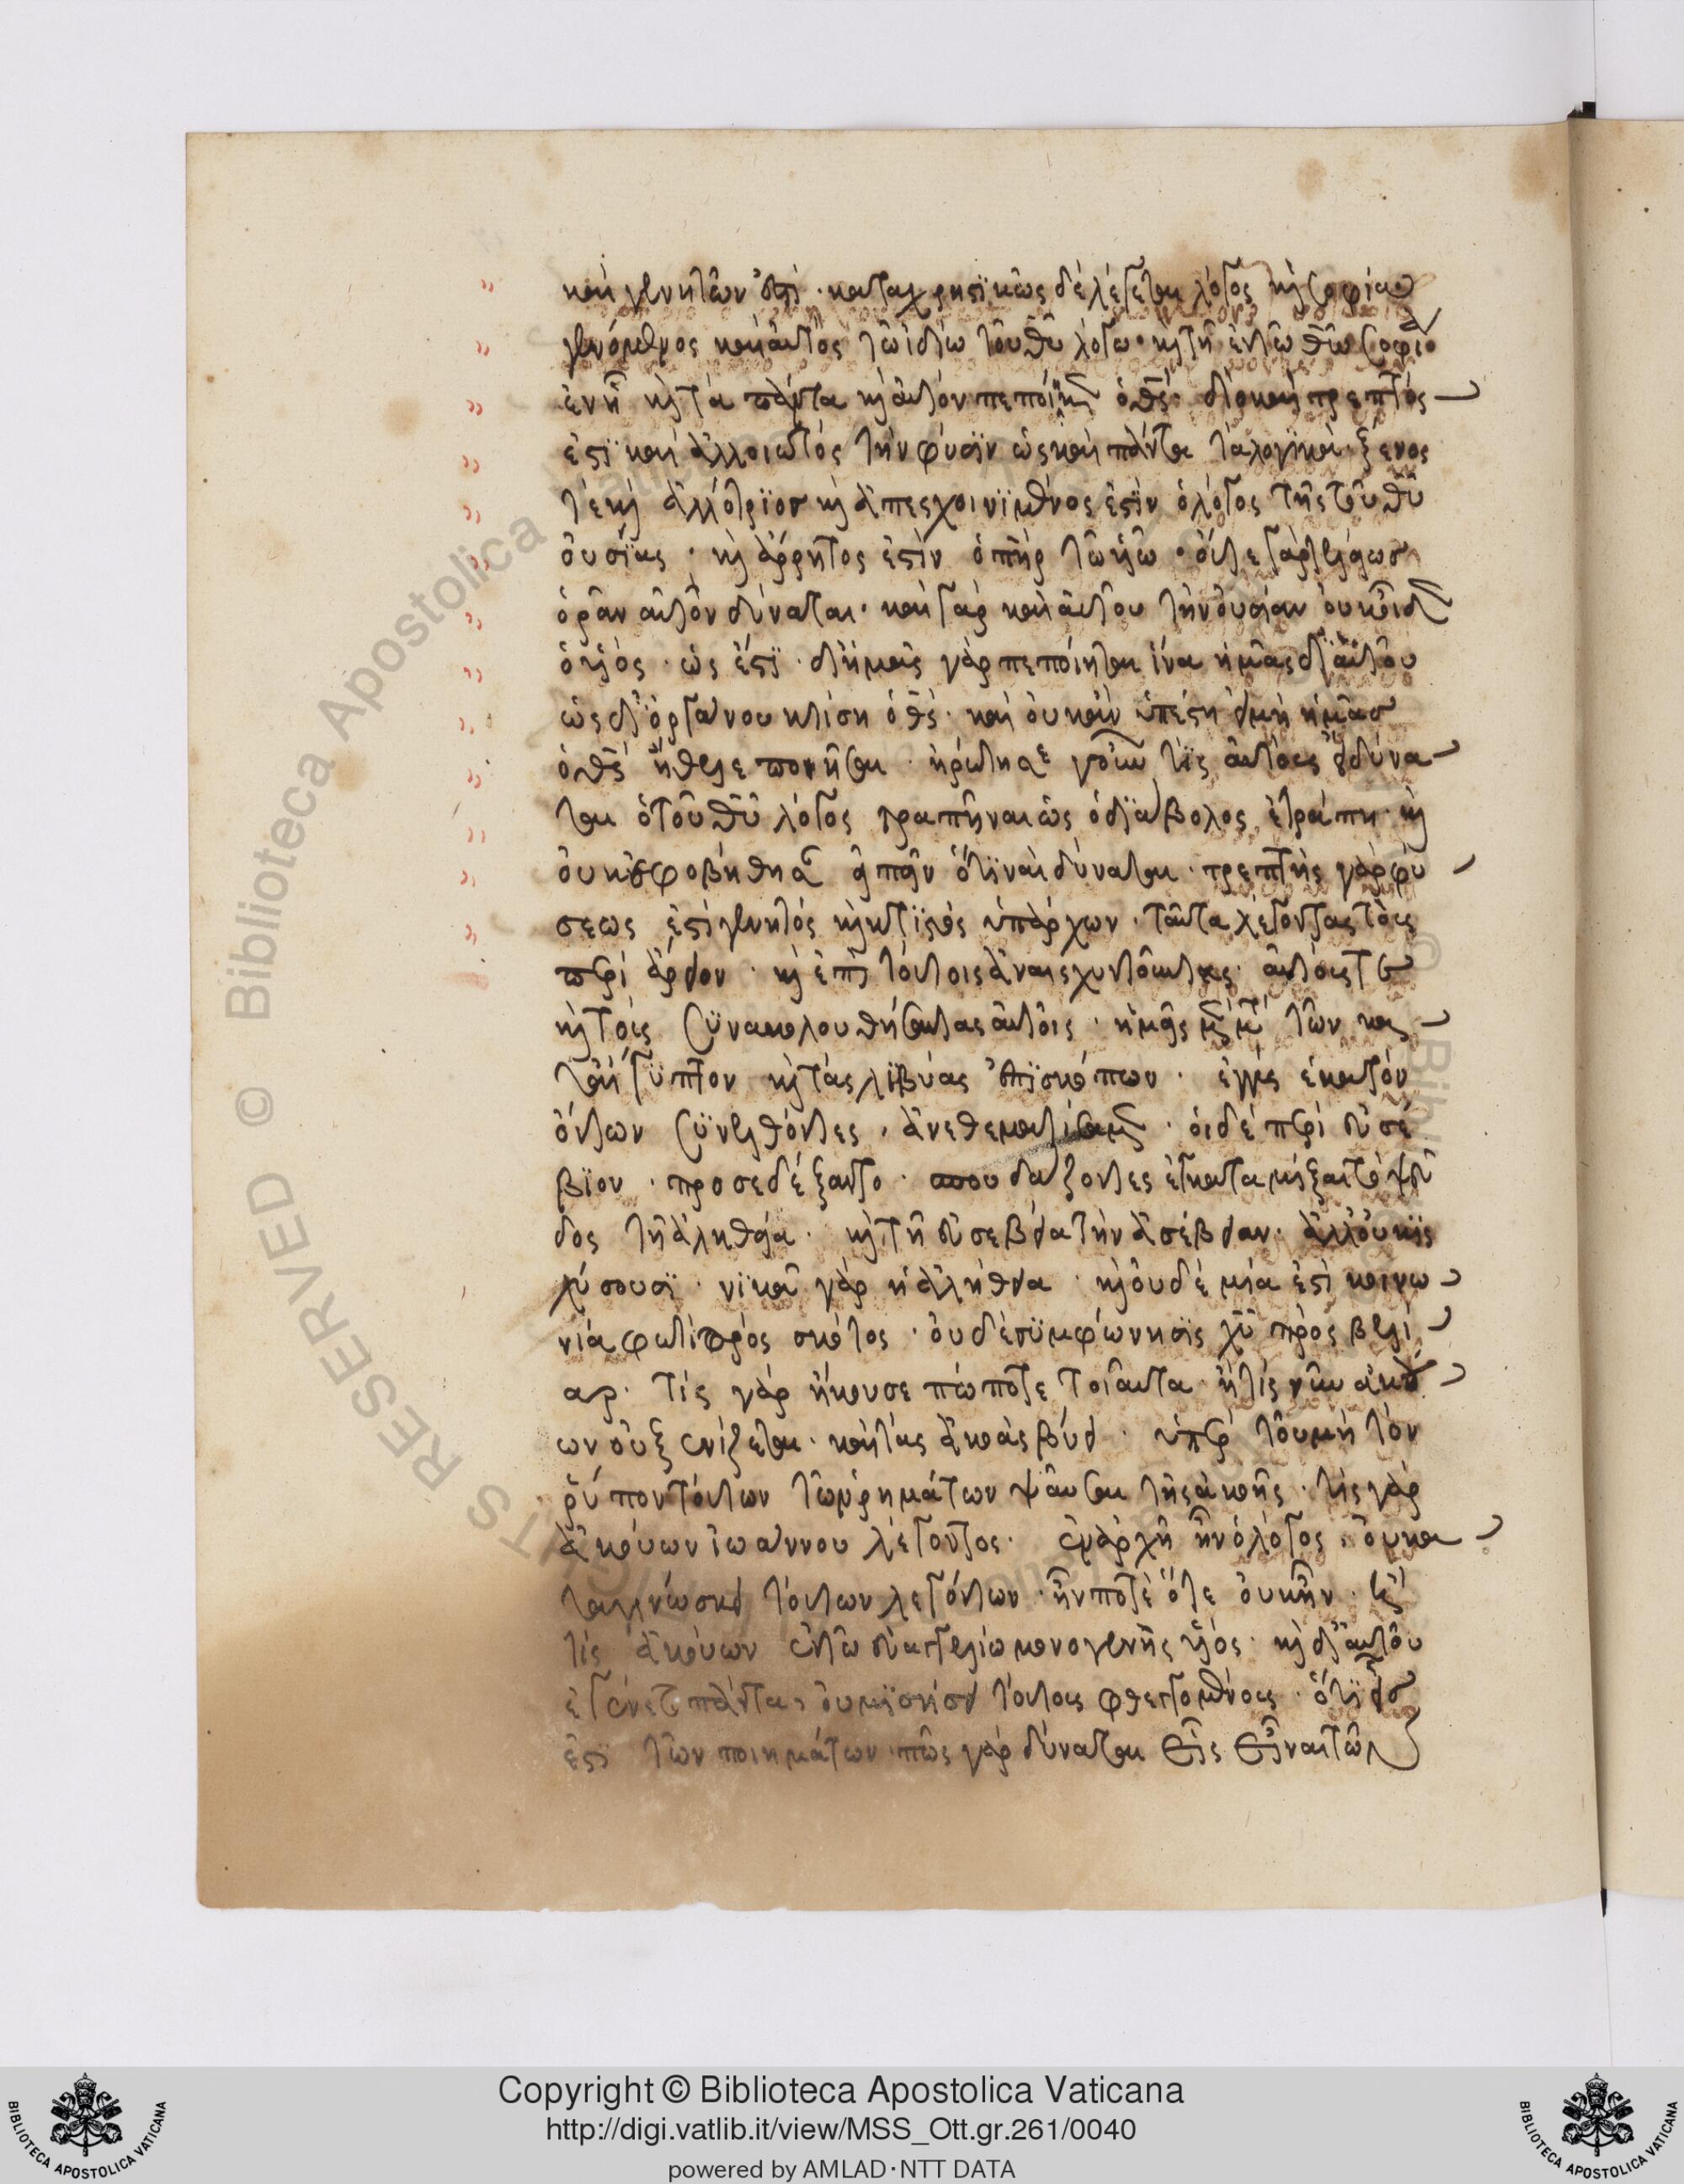 καὶ γενητῶν ἐστί· καταχρηστικῶς δὲ λέγεται λόγος κ(αὶ) σοφία
γενόμενος καὶ αὐτὸς τῶ ἰδίω τοῦ θυ λόγω· κ(αὶ) τῆ ἐν τῶ θω σοφία
ἐν ἧ κ(αὶ) τὰ πάντα κ(αὶ) αὐτὸν πεποίηκ(εν) ὁ θς· διὸ καὶ τρεπτός
ἐστι καὶ ἀλλοιωτὸς τὴν φύσιν ὡς καὶ πάντα τὰ λογικά· ξένος
τὲ κ(αὶ) ἀλλότριος κ(αὶ) ἀπεσχοινισμένος ἐστὶν ὁ λόγος τῆς τοῦ θυ
οὐσίας· κ(αὶ) ἄρρητος ἐστὶν ὁ πηρ τῶ υἱῶ· οὔτε γὰρ τελείως
ὁρᾶν αὐτὸν δύναται· καὶ γὰρ καὶ αὐτοῦ τὴν οὐσίαν οὐκ οἶδ(εν)
ὁ υἱός· ὡς ἔστι· δι' ἡμᾶς γὰρ πεποίηται ἵνα ἡμᾶς δι' αὐτοῦ
ὡς δι' ὀργάνου κτίση ὁ θς· καὶ οὐκ ἂν ὑπέστη εἰ μὴ ἡμᾶς
ὁ θς ἤθελε ποιῆσαι· ἠρώτησε γοῦν τὶς αὐτοὺς εἰ δύνα
ται ὁ τοῦ θυ λόγος τραπῆναι ὡς ὁ διάβολος ἐτράπη· κ(αὶ)
οὐκ ἐφοβήθησαν εἰπεῖν ὅτι ναὶ δύναται· τρεπτῆς γὰρ φύ
σεως ἐστὶ γενητὸς κ(αὶ) κτιστὸς ὑπάρχων· ταῦτα λέγοντας τοὺς
περὶ ἄρειον· κ(αὶ) ἐπὶ τούτοις ἀναισχυντοῦντας· αὐτούς τε
κ(αὶ) τοὺς συνακολουθήσαντας αὐτοῖς· ἡμεῖς μὲν μετὰ τῶν κα
τ' αἴγυπτον κ(αὶ) τὰς λιβύας ἐπισκόπων· ἐγγὺς ἑκατὸν
ὄντων συνελθόντες· ἀνεθεματίσαμεν· οἱ δὲ περὶ εὐσέ
βιον· προσεδέξαντο· σπουδάζοντες ἐγκαταμίξαι τὸ ψεῦ
δος τῆ ἀληθεία· κ(αὶ) τῆ εὐσεβεία τὴν ἀσέβειαν· ἀλλ' οὐκ ἰς
χύσουσι· νικᾶ γὰρ ἡ ἀλήθεια· κ(αὶ) οὐδὲ μία ἐστὶ κοινω
νία φωτὶ πρὸς σκότος· οὐδὲ συμφώνησις χυ πρὸς βελί
αρ· τίς γὰρ ἤκουσε πώποτε τοιαῦτα· ἢ τίς νῦν ἀκού
ων οὐ ξενίζεται· καὶ τὰς ἀκοὰς βύει· ὑπὲρ τοῦ μὴ τὸν
ῥύπον τούτων τῶν ῥημάτων ψαῦσαι τῆς ἀκοῆς· τίς γὰρ
ἀκούων ἰωάννου λέγοντος· ἐν ἀρχῆ ἦν ὁ λόγος· οὐ κα
ταγινώσκει τούτων λεγόντων· ἦν ποτὲ ὅτε οὐκ ἦν· κ(αὶ)
τίς ἀκούων ἐν τῶ εὐαγγελίω μονογενὴς υἱός· κ(αὶ) δι' αὐτοῦ
ἐγένετο πάντα· οὐ μισήσει τούτους φθεγγομένους· ὅτι εἷς
ἐστι τῶν ποιημάτων· πῶς γὰρ δύναται εἷς εἶναι τῶν